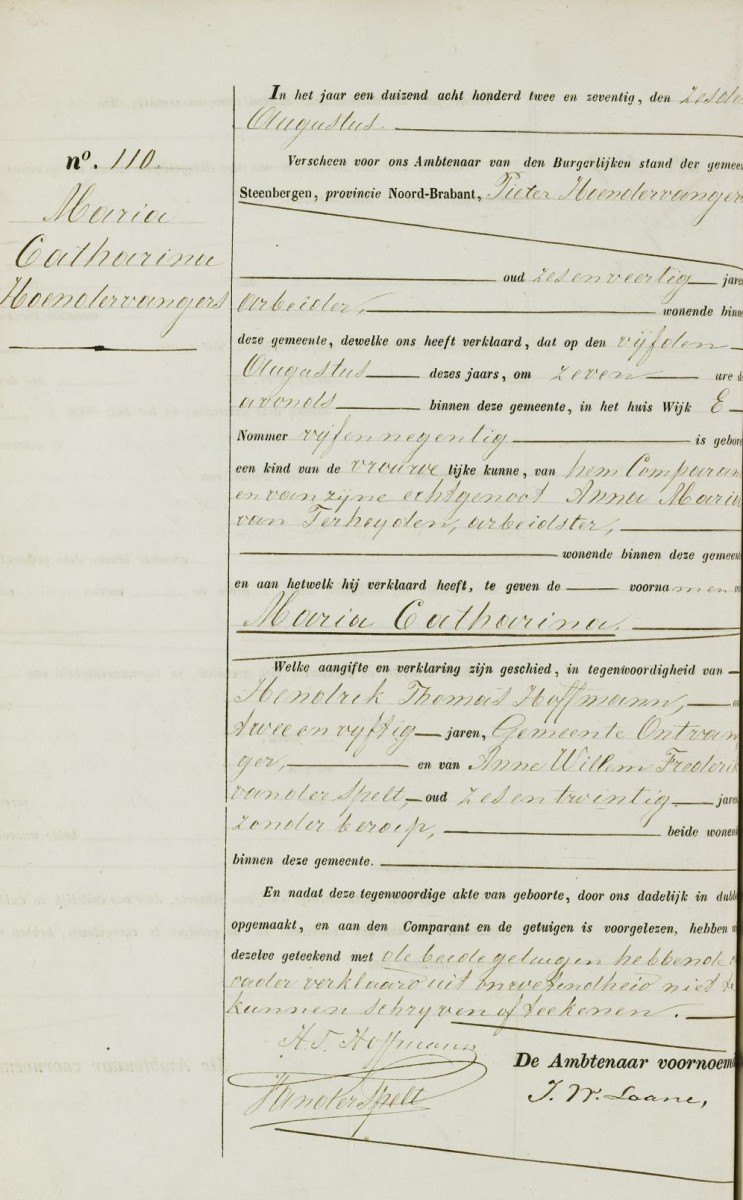 nº. 110.
Maria
Catharina
Hoendervangers
In het jaar een duizend acht honderd twee en zeventig, den zesde
Augustus.
Verscheen voor ons Ambtenaar van den Burgerlijken stand der gemeen
Steenbergen, provincie Noord-Brabant, Pieter Hoendervangers
oud zesenveertig jare
arbeider, wonende binne
deze gemeente, dewelke ons heeft verklaard, dat op den vijfden
Augustus dezes jaars, om zeven ure d
avonds binnen deze gemeente, in het huis Wijk E
Nommer vijfennegentig is gebore
een kind van de vrouwelijke kunne, van hem Comparan
en van zijne echtgenoot Anna Maria
van Terheyden, arbeidster,
wonende binnen deze gemeent
en aan hetwelk hij verklaard heeft, te geven de voornamen
Maria Catharina.
Welke aangifte en verklaring zijn geschied, in tegenwoordigheid van
Hendrik Thomas Hoffmann,
twee en vyftig jaren, Gemeente Ontvan
ger, en van Anne Willem Frederik
van der Spelt, oud zesentwintig jaren
zonder beroep, beide wonen
binnen deze gemeente.
En nadat deze tegenwoordige akte van geboorte, door ons dadelijk in dubb
opgemaakt, en aan den Comparant en de getuigen is voorgelezen, hebben w
dezelve geteekend met de beide getuigen hebbende d
vader verklaard uit onwetendheid niet te
kunnen schryven of teekenen.
H. T. Hoffmann
De Ambtenaar voornoemd
VanderSpelt
J. W. Laane,